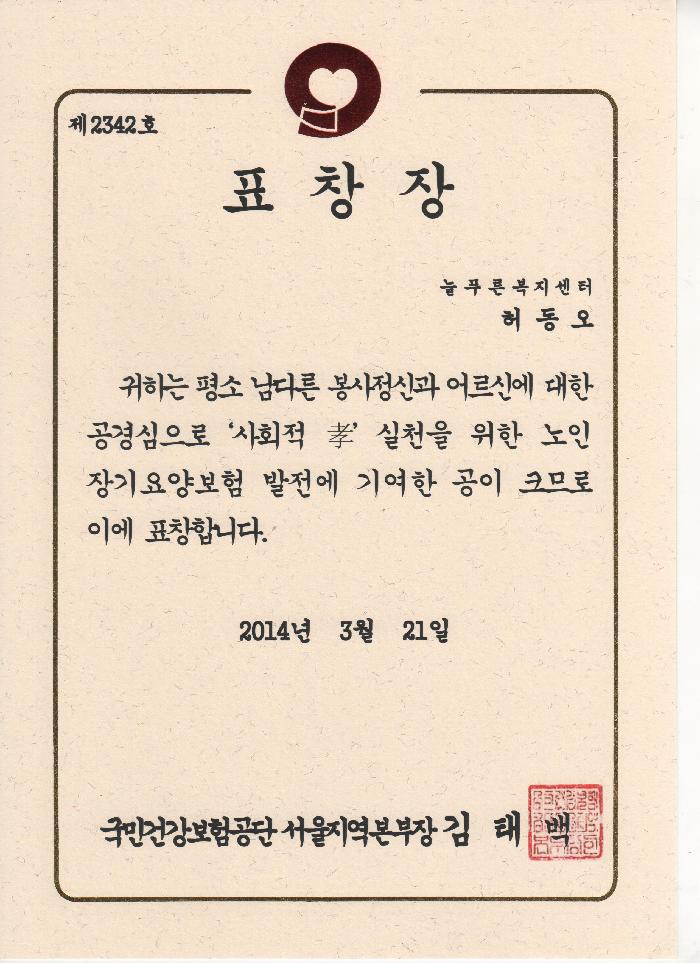 제2342호
표 창 장
늘푸른복지센터
허 동 오
귀하는 평소 남다른 봉사정신과 어르신에 대한
공경심으로 '사회적 孝' 실천을 위한 노인
장기요양보험 발전에 기여한 공이 크므로
이에 표창합니다.
2014년 3월 21일
국민건강보험공단 서울지역본부장 김 태 백